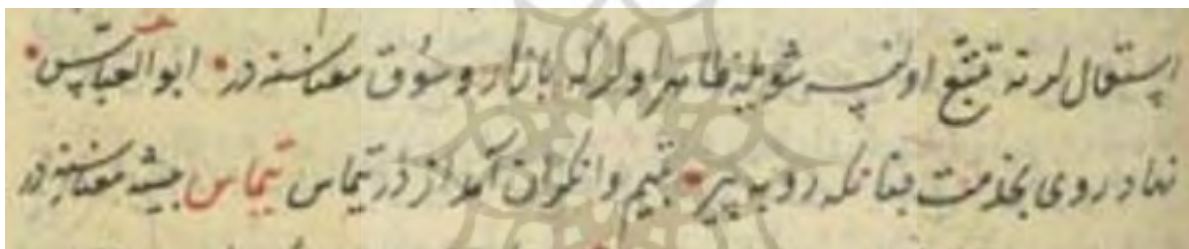 استعمال لرنه تتبع اولنسه شویله ظاهر اولور که بازار و سوق معناسنه در ابو العباس
نهاد روی بخدمت چنانکه روبه پیر بتیم وانکران آمد از در تیماس تیماس بیشه معناسنه در